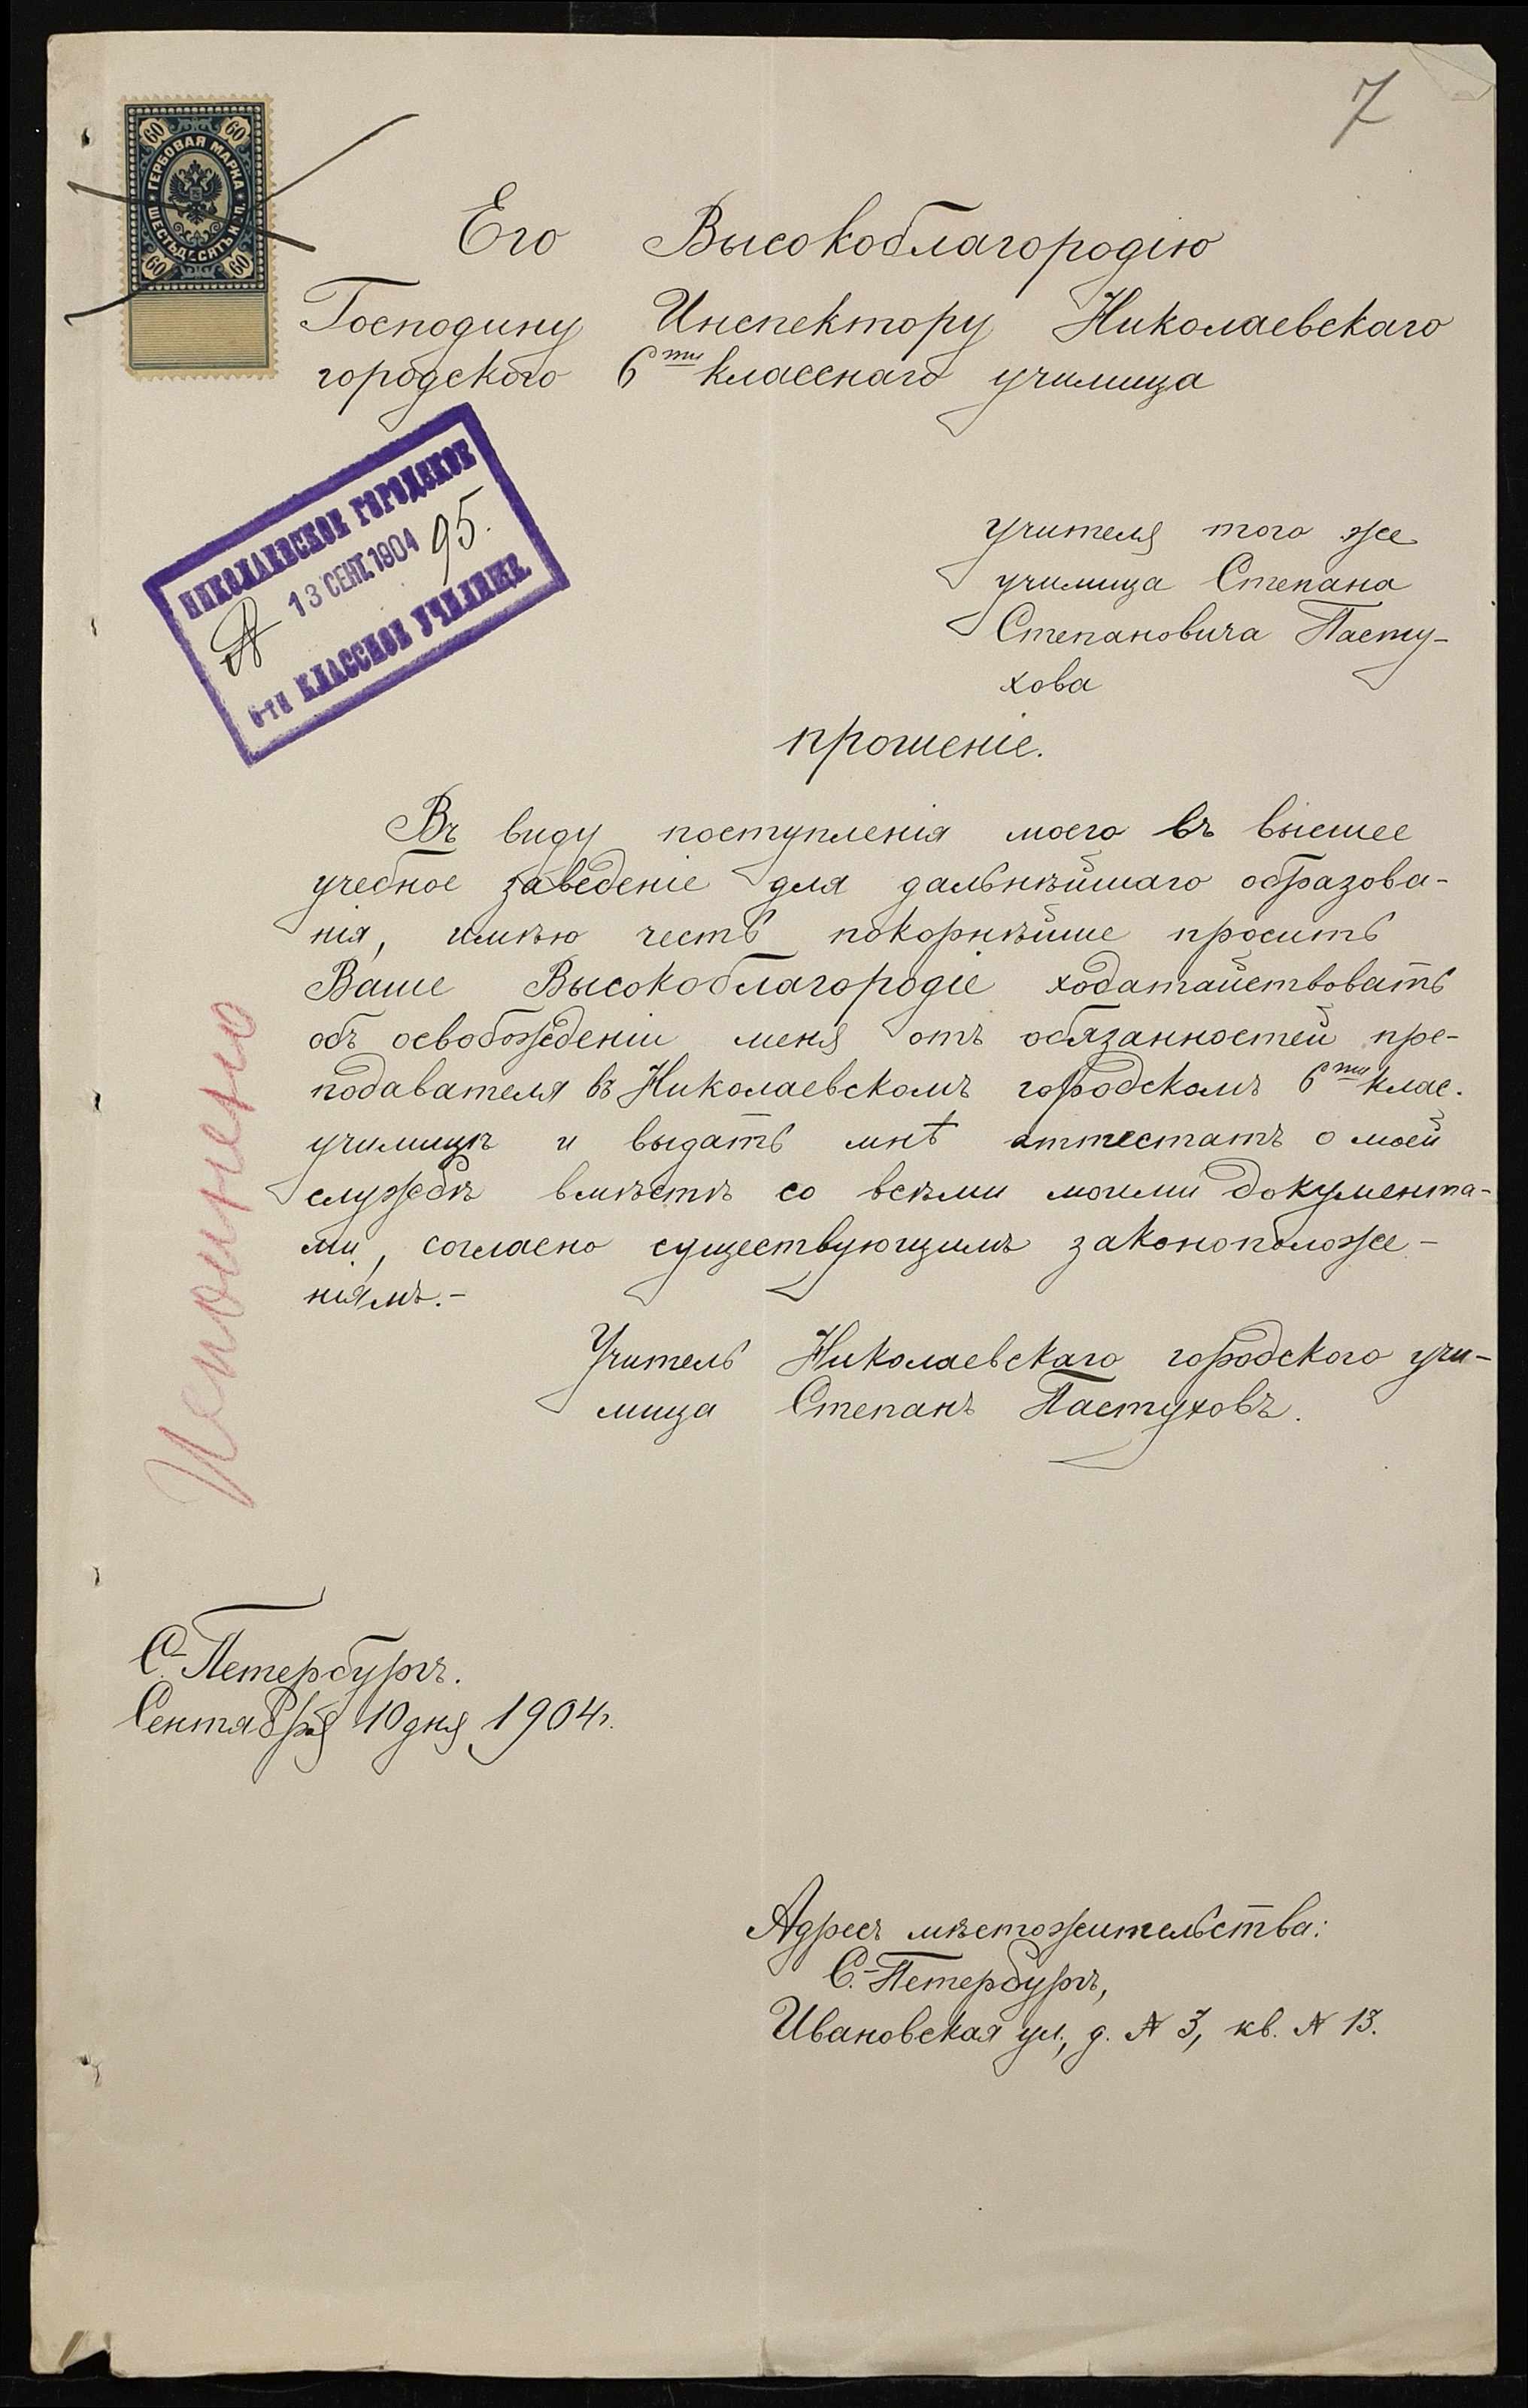 7
60 60
ГЕРБОВАЯ МАРКА
ШЕСТЬДЕСЯТЬ К.
60 60
Его Высокоблагородію
Господину Инспектору Николаевскаго
городского 6ти класснаго училища
НИКОЛАЕВСКОЕ ГОРОДСКОЕ
№ 13 СЕНТ. 1904 95.
6-ти КЛАССНОЕ УЧИЛИЩЕ
учителя того же
училища Степана
Степановича Пасту-
хова
прошеніе.
Въ виду поступленія моего въ высшее
учебное заведеніе для дальнѣйшаго образова-
нія, имѣю честь покорнѣйше просить
Ваше Высокоблагородіе ходатайствовать
объ освобожденіи меня отъ обязанностей пре-
подавателя въ Николаевскомъ городскомъ 6ти клас.
училищѣ и выдать мнѣ аттестатъ о моей
службѣ вмѣстѣ со всѣми моими документа-
ми, согласно существующимъ законоположе-
ніямъ.-
Учитель Николаевскаго городского учи-
лища Степанъ Пастуховъ.
Исполнено
С.-Петербургъ.
Сентября 10 дня 1904 г.
Адресъ мѣстожительства:
С.-Петербургъ,
Ивановская ул., д. № 3, кв. № 13.